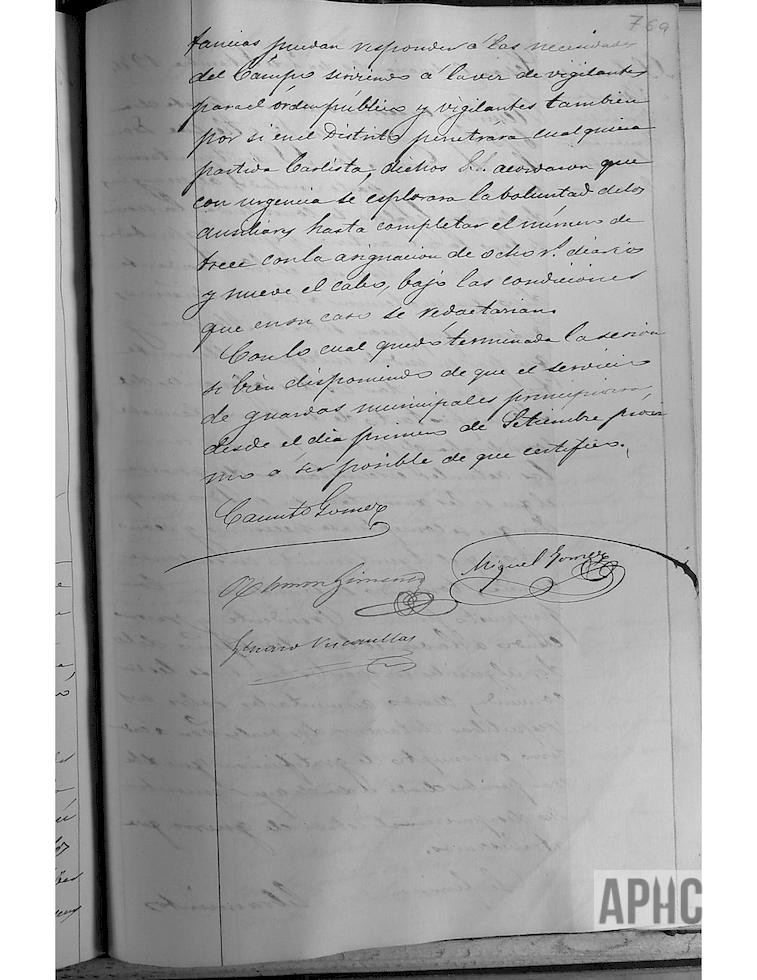 769
tancias puedan responder á las necesidades
del Campo sirviendo á la vez de vigilantes
para el órden público y vigilantes tambien
por si en el Distrito penetrára cualquiera
partida Carlista, dichos S.S. acordaron que
con urgencia se esplorara la voluntad de los
auxiliares hasta completar el número de
trece con la asignacion de ocho rs. diarios
y nueve el cabo, bajo las condiciones
que en su caso se redactarian.
Con lo cual quedó terminada la sesion
si bien disponiendo de que el servicio
de guardas municipales principiara
desde el dia primero de Setiembre próxi
mo á ser posible de que certifico.
Canuto Gomez
Ramon Gimenez
Miguel Gomez
Genaro
APHC